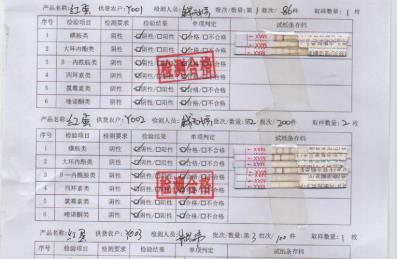 产品名称: 红蛋 供货客户: Y001 检测人员: 批次/数量: 第 1 批次: 86件 取样数量: 1 枚
序号 检验项目 检测要求 检验结果 单项判定 试纸条存档
1 磺胺类 阴性 ☑阴性/☐阳性 ☑合格/☐不合格
2 大环内酯类 阴性 ☑阴性/☐阳性 ☑合格/☐不合格
3 β—内酰胺类 阴性 ☑阴性/☐阳性 ☑合格/☐不合格
4 四环素类 阴性 ☑阴性/☐阳性 ☑合格/☐不合格
5 氯霉素类 阴性 ☑阴性/☐阳性 ☑合格/☐不合格
6 喹诺酮类 阴性 ☑阴性/☐阳性 ☑合格/☐不合格
检测合格
产品名称: 红蛋 供货客户: Y002 检测人员: 批次/数量: 第2 批次/ 200件 取样数量: 2 枚
序号 检验项目 检测要求 检验结果 单项判定 试纸条存档
1 磺胺类 阴性 ☑阴性/☐阳性 ☑合格/☐不合格
2 大环内酯类 阴性 ☑阴性/☐阳性 ☑合格/☐不合格
3 β—内酰胺类 阴性 ☑阴性/☐阳性 ☑合格/☐不合格
4 四环素类 阴性 ☑阴性/☐阳性 ☑合格/☐不合格
5 氯霉素类 阴性 ☑阴性/☐阳性 ☑合格/☐不合格
6 喹诺酮类 阴性 ☑阴性/☐阳性 ☑合格/☐不合格
检测合格
产品名称: 红蛋 供货客户: Y003 检测人员: 批次/数量: 第 3 批次/ 100 件 取样数量: 1 枚
序号 检验项目 检测要求 检验结果 单项判定 试纸条存档